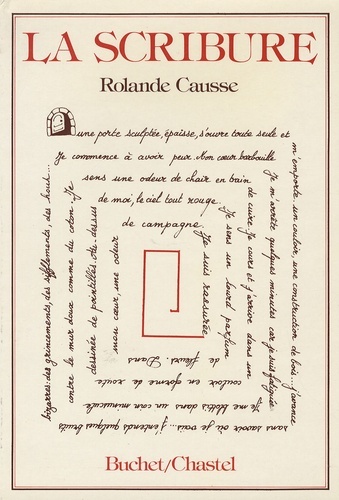 LA SCRIBURE
Rolande Causse
une porte sculptée, épaisse, s'ouvre toute seule et
m'emporte un couloir, une construction de bois. j'avance
sans savoir où je vais... j'entends quelques bruits
bizarres: des grincements, des sifflements, des hou...
Je commence à avoir peur. Mon cœur barbouille
Je m'arrête quelques minutes car je suis fatiguée.
Je me blottis dans un coin minuscule
contre le mur doux comme du coton. Je
sens une odeur de chair en bain
de cuire. Je cours et j'arrive dans un
couloir en forme de route
dessinée de pointillés. Au-dessus
de moi, le ciel tout rouge.
Je sens un lourd parfum
de fleurs. Dans
mon cœur, une odeur
de campagne.
Je suis rassurée
Buchet/Chastel